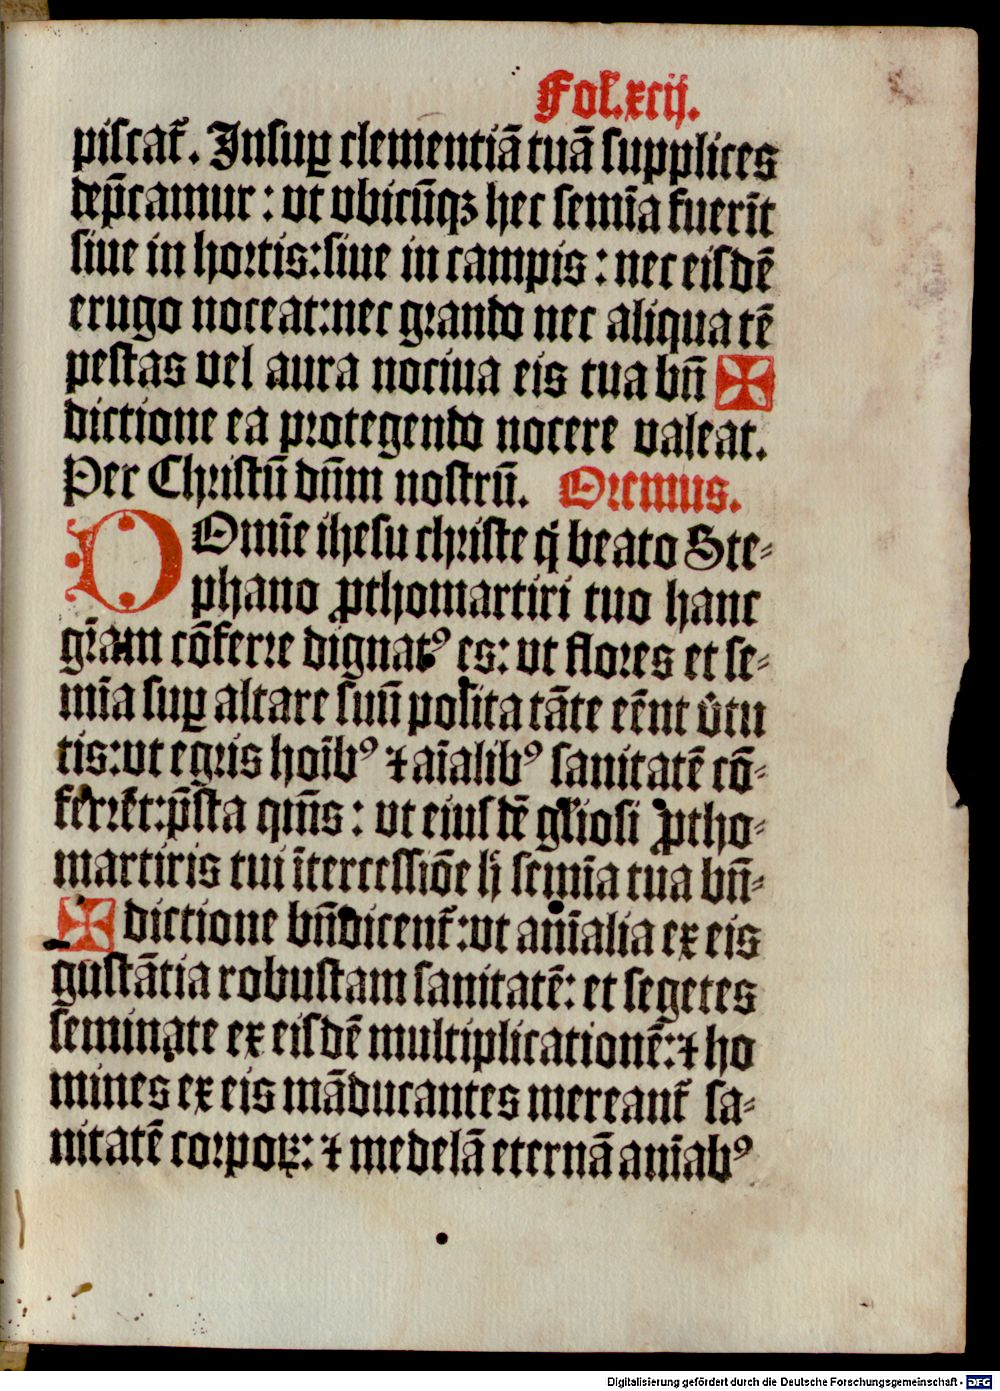 Fol. xcij.
piscat̃. Insuꝑ clementiã tuã supplices
dep̃camur: ut ubicũqꝫ hec semĩa fuerĩt
siue in hortis: siue in campis: nec eisdẽ
erugo noceat: nec grando nec aliqua tẽ
pestas vel aura nociua eis tua bñ ✠
dictione ea protegendo nocere valeat.
Per Christũ dñm nostrũ. Oremus.
DOmĩe ihesu christe q̃ beato Ste⸗
phano ꝓthomartiri tuo hanc
gr̃am cõferre dignatꝰ es: ut flores et se⸗
mĩa suꝑ altare suũ posita tãte eẽnt v̓tu
tis: ut egris hoĩbꝰ ⁊ aĩalibꝰ sanitatẽ cõ⸗
ferrẽt: p̃sta qm̃s: ut eiusdẽ gl̃iosi ꝓtho⸗
martiris tui ĩtercessiõe h̃ semĩa tua bñ⸗
✠ dictione bñdicent̃: ut anĩalia ex eis
gustãtia robustam sanitatẽ: et segetes
seminate ex eisdẽ multiplicationẽ: ⁊ ho
mines ex eis mãducantes mereant̃ sa⸗
nitatẽ corpoꝝ: ⁊ medelã eternã anĩabꝰ
Digitalisierung gefördert durch die Deutsche Forschungsgemeinschaft - DFG